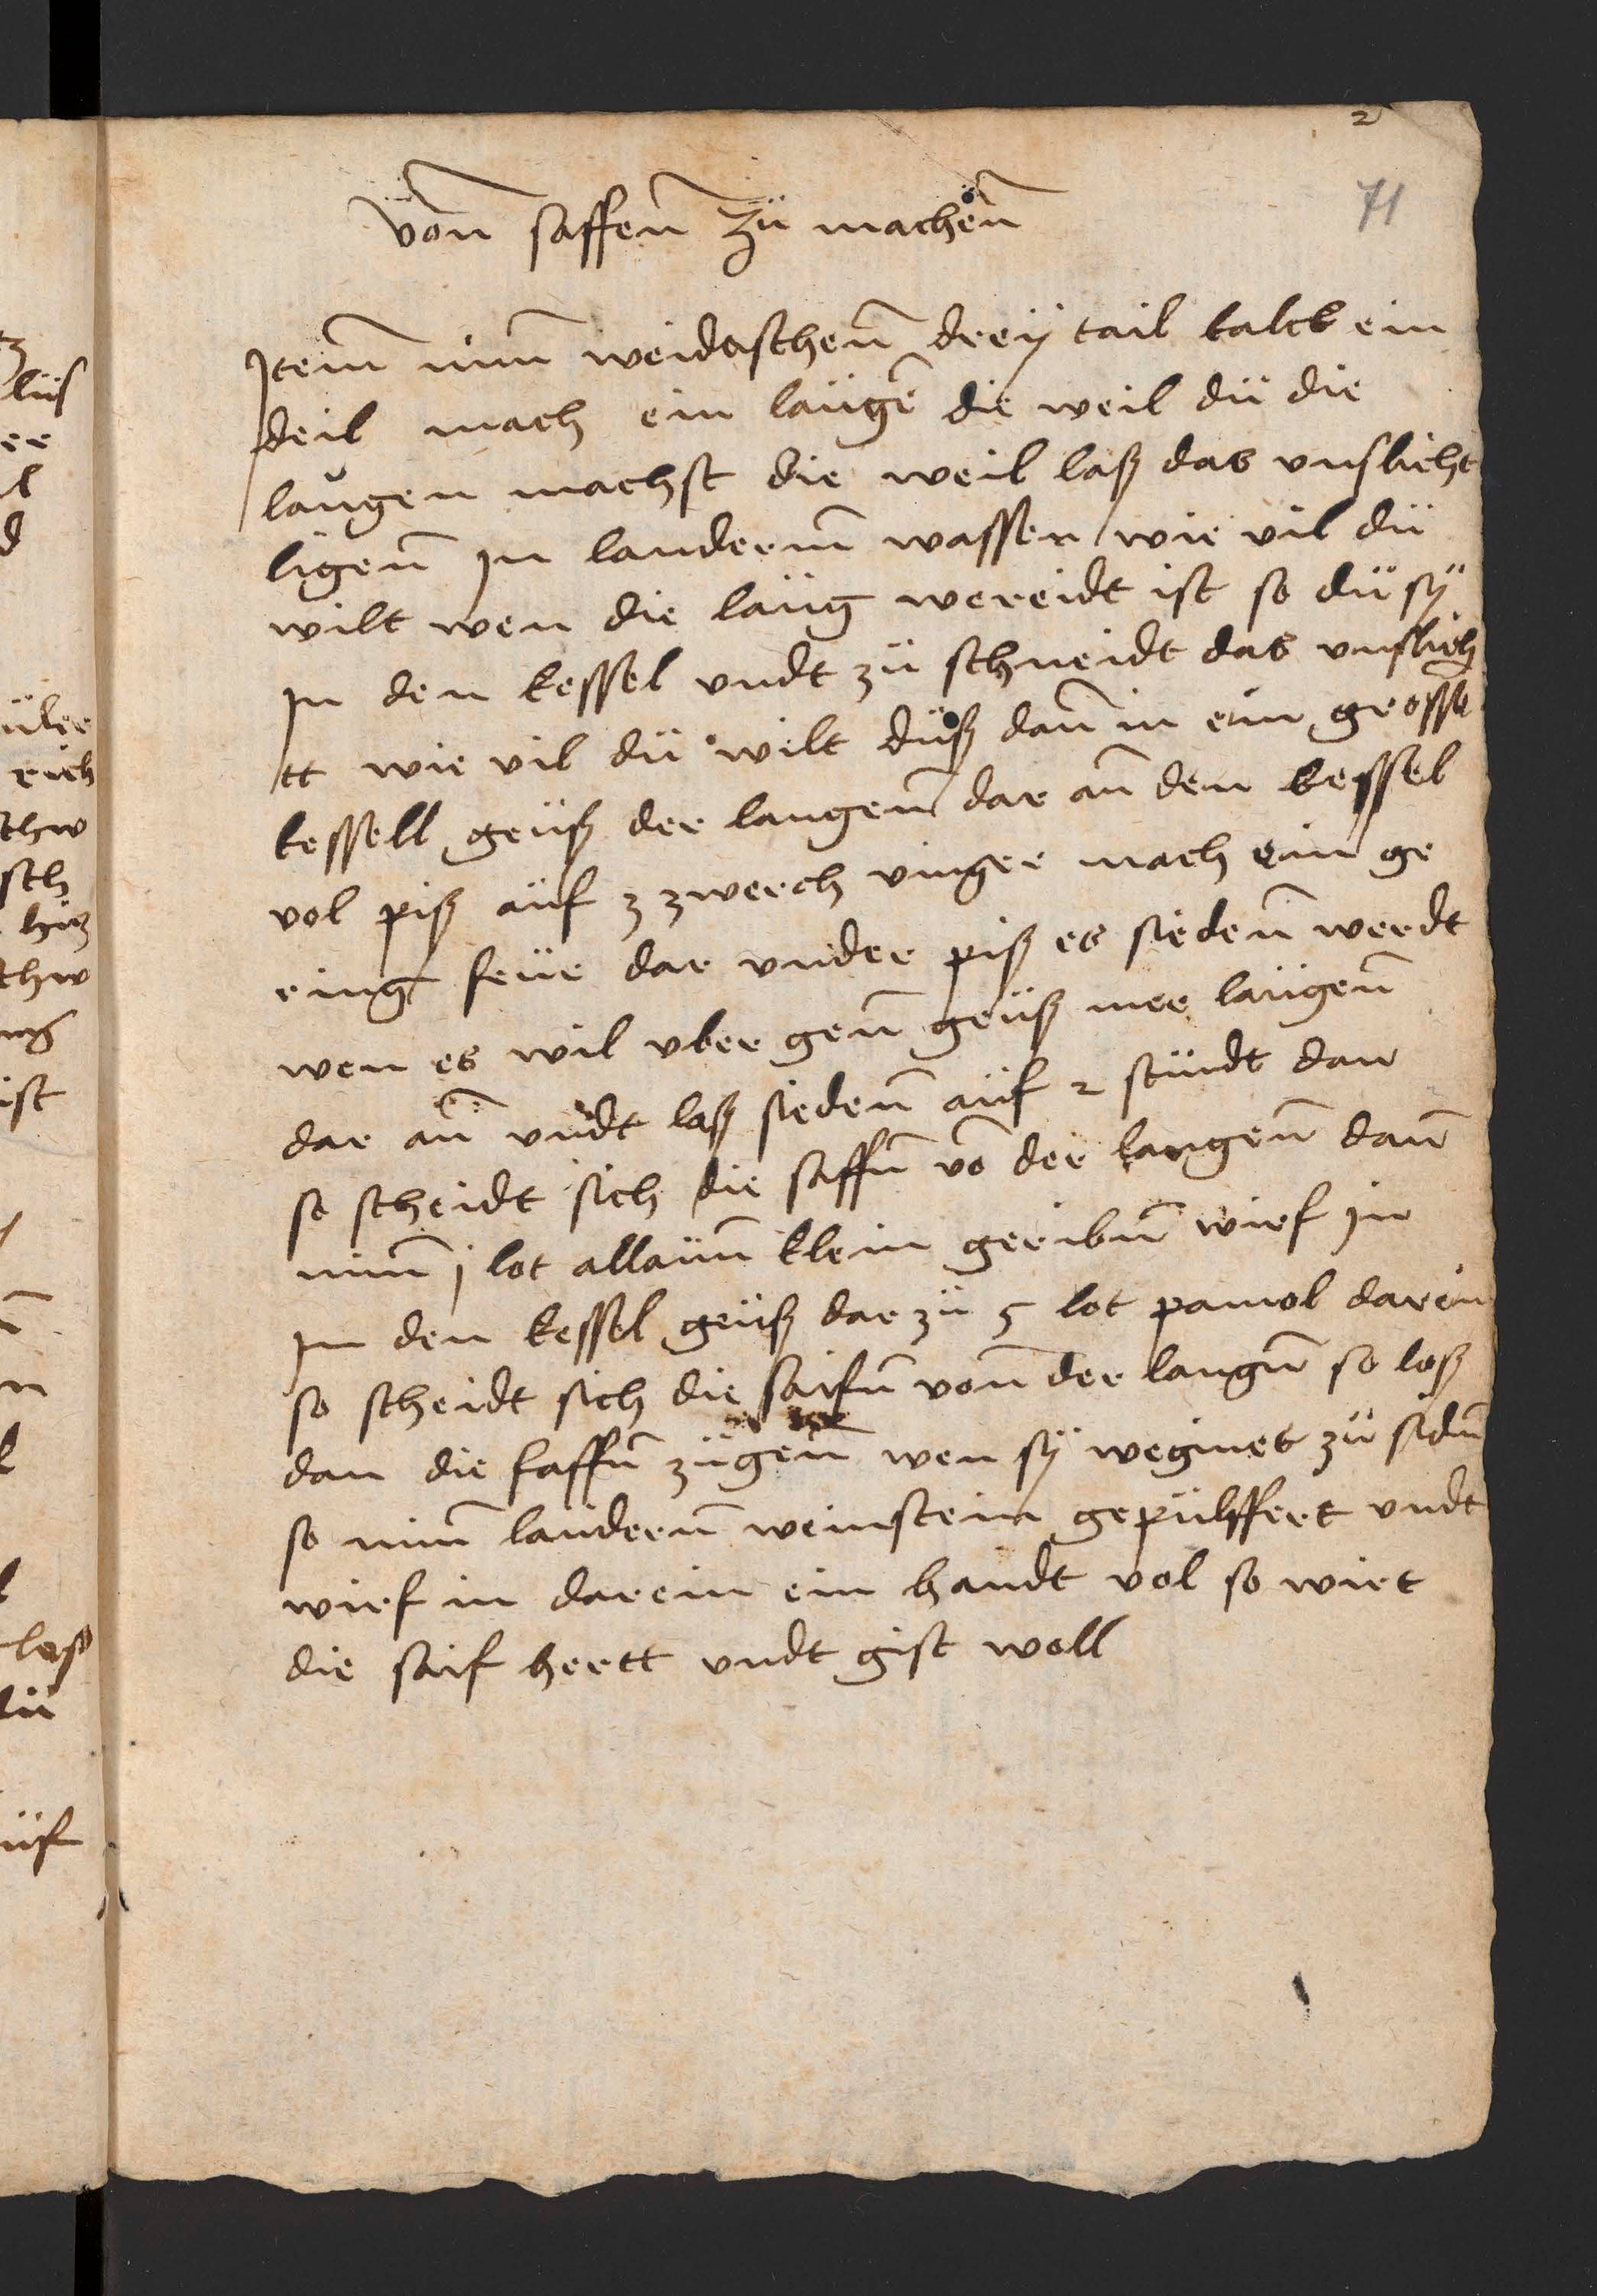 2
71
von saffen zü machen
Item nim weidaschen dreÿ tail kalck ein
deil mach ein läugen die weil dü die
laugen machst die weil laß das vnslicht
ligen Jn lauderem wasser wie vil dü
wilt wen die läug wereidt ist so dü sÿ
Jn den kessel vndt zü schneidt das vnslich
tt wie vil dü wilt düß dan in ein grosse
kessell geüß der laugen dar an den kessel
vol piß aüf 3 zwerch vinger mach ein ge
ring feür dar vnder piß es sieden werdt
wen es wil vber gen geüß mer laügen
dar an vndt laß sieden aüf 2 stündt dan
so scheidt sich die saffn vo der laugen dan
nim j lot allaün klein geribn wirf in
Jn den kessel geüß dar zü 5 lot pamol darein
so scheidt sich die saifn von der laugn so loß
dan die saffn zü gen wen sÿ weginet zü sidn
so nim lauderen weinstein gepülffert vndt
wirf in darein ein handt vol so wirt
die saif hertt vndt gist woll